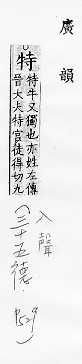 廣韻
特
特牛又獨也亦姓左傳
晉大夫特宫徒得切九
入聲
(三十五德.
P529)